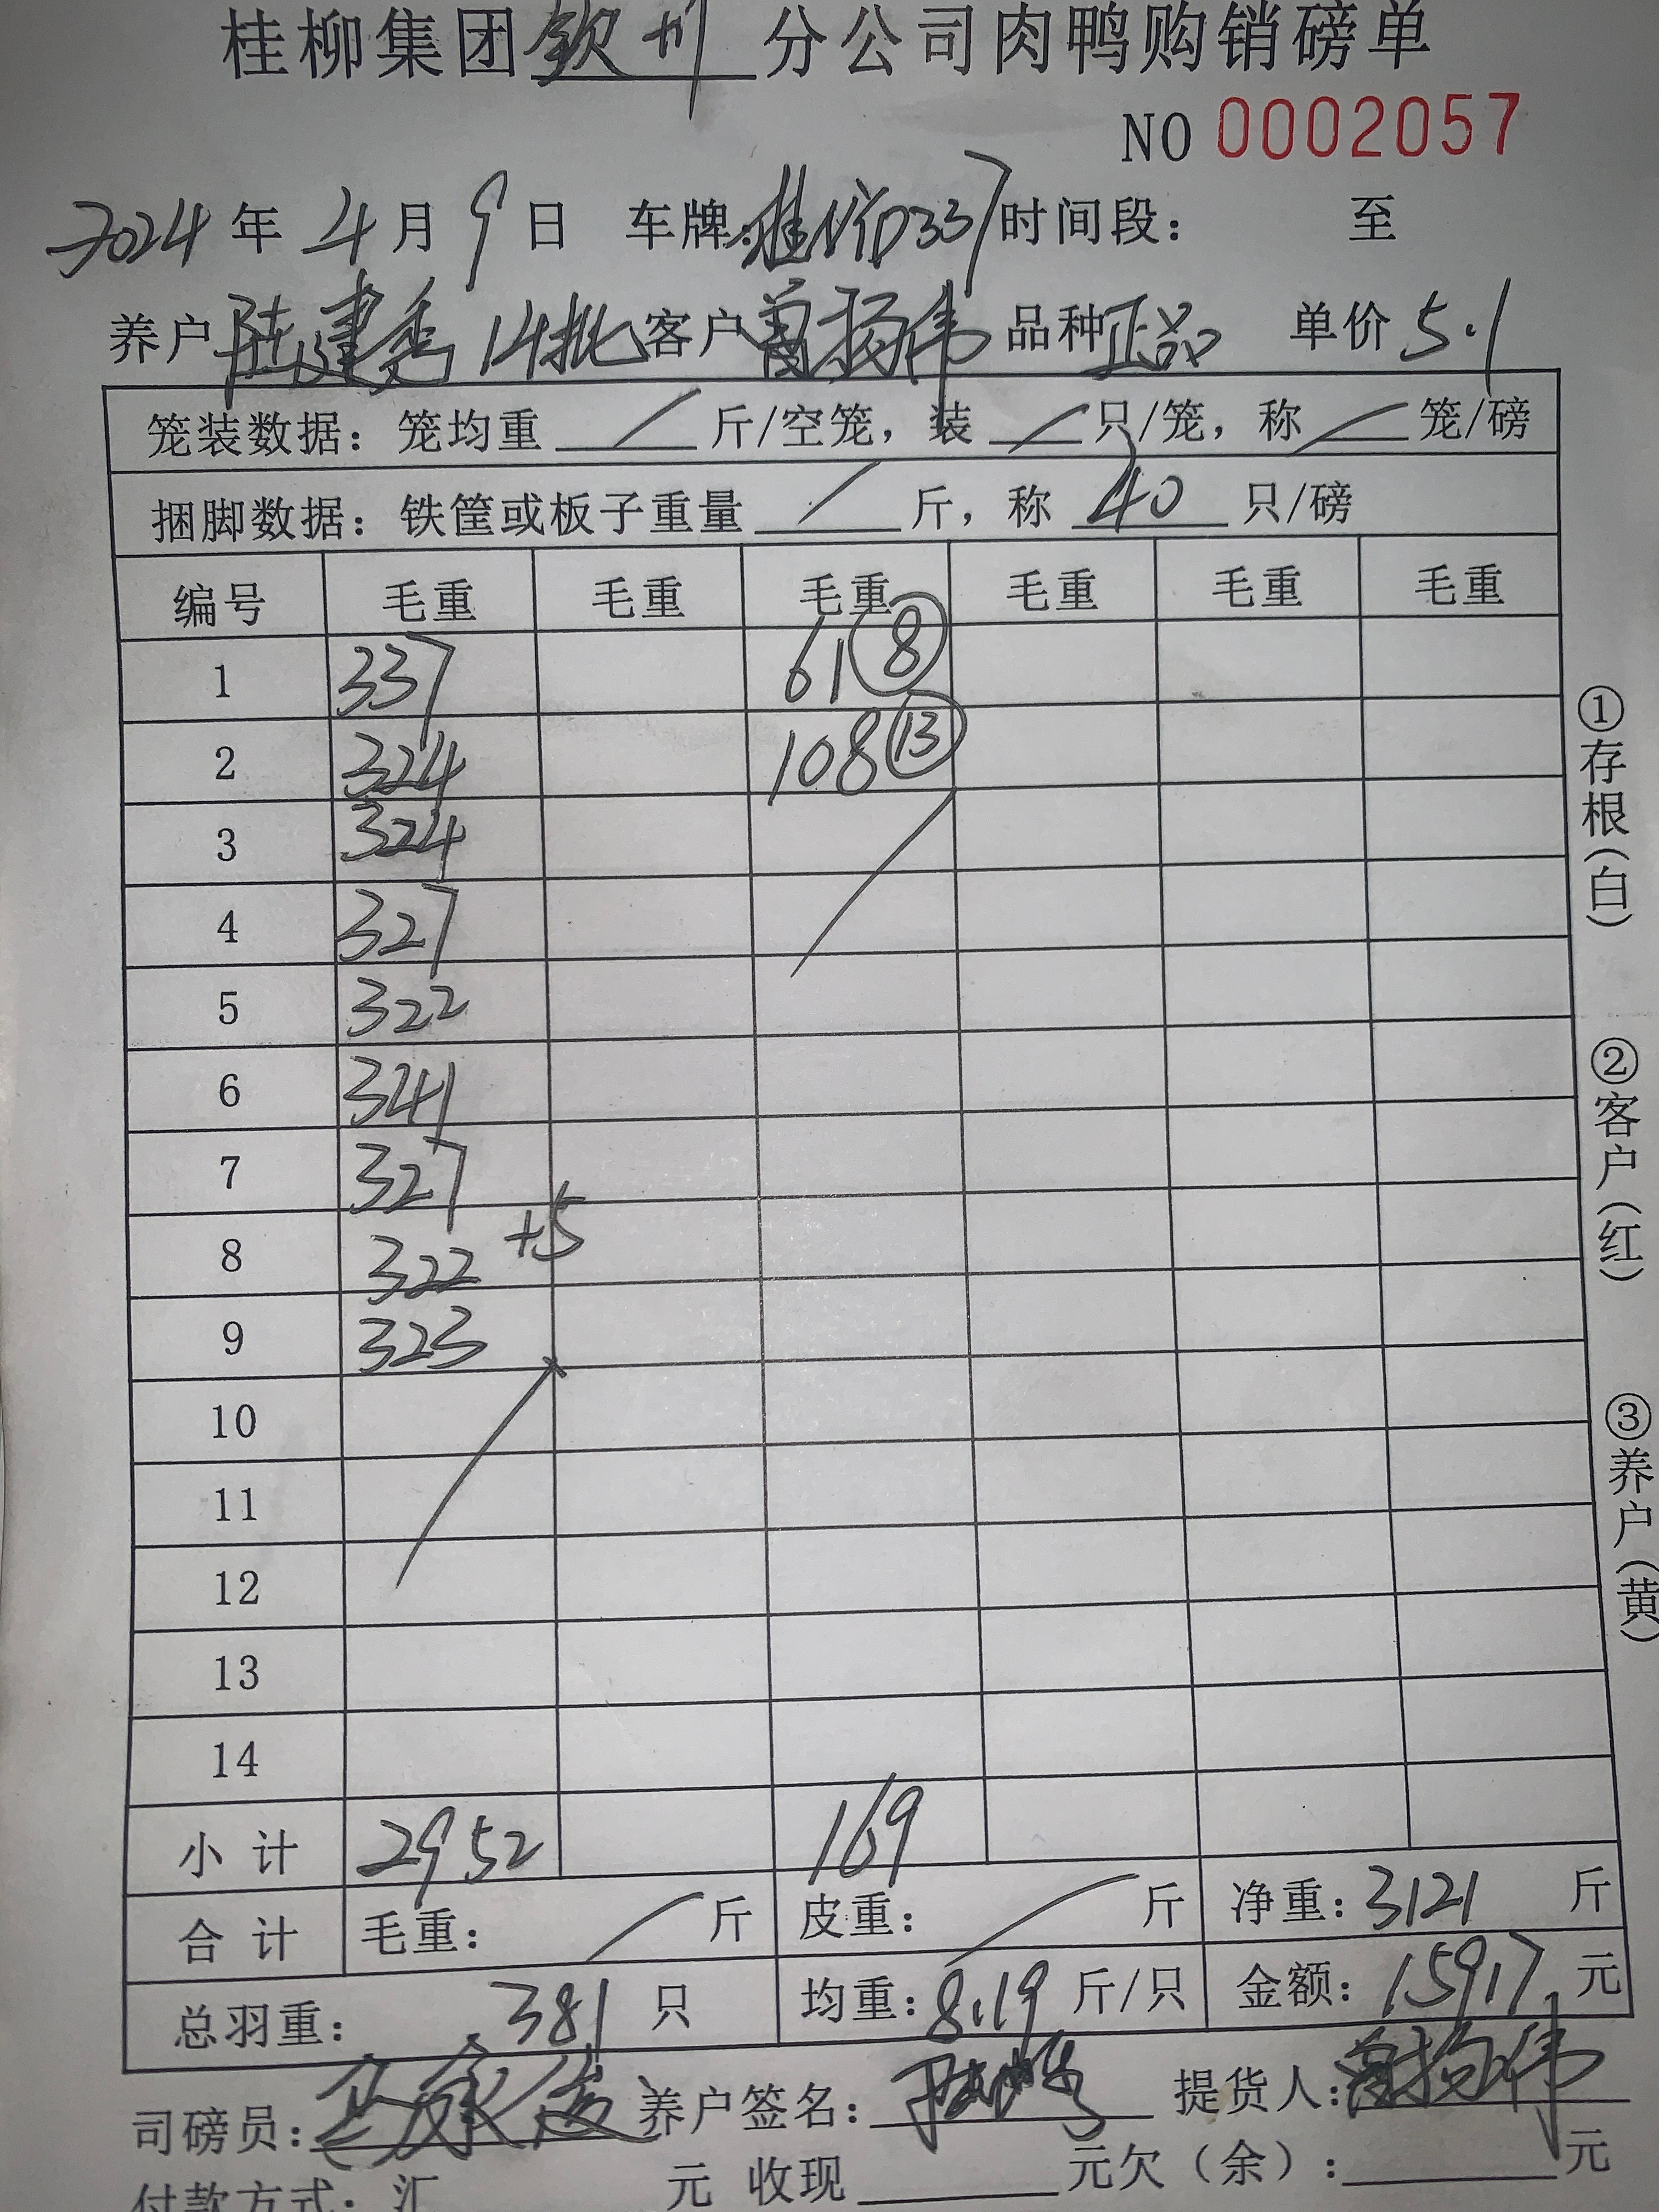 桂柳集团钦州分公司肉鸭购销磅单
NO 0002057
2024年4月9日 车牌:桂N D337 时间段: 至
养户陆建秀 14批 客户曾扬伟 品种正品 单价5.1
笼装数据:笼均重 / 斤/空笼,装 / 只/笼,称 / 笼/磅
捆脚数据:铁筐或板子重量 / 斤,称 40 只/磅
编号 毛重 毛重 毛重 毛重 毛重 毛重
1 337 61 ⑧
2 324 108 ⑬
3 324
4 327
5 322
6 341
7 327
8 322 +5
9 323
10
11
12
13
14
小计 2952 169
合计 毛重: / 斤 皮重: / 斤 净重:3121 斤
总羽重: 381 只 均重:8.19 斤/只 金额:15917.1元
司磅员: 养户签名: 提货人:曾扬伟
付款方式:汇 元 收现 元欠(余): 元
①存根(白)
②客户(红)
③养户(黄)